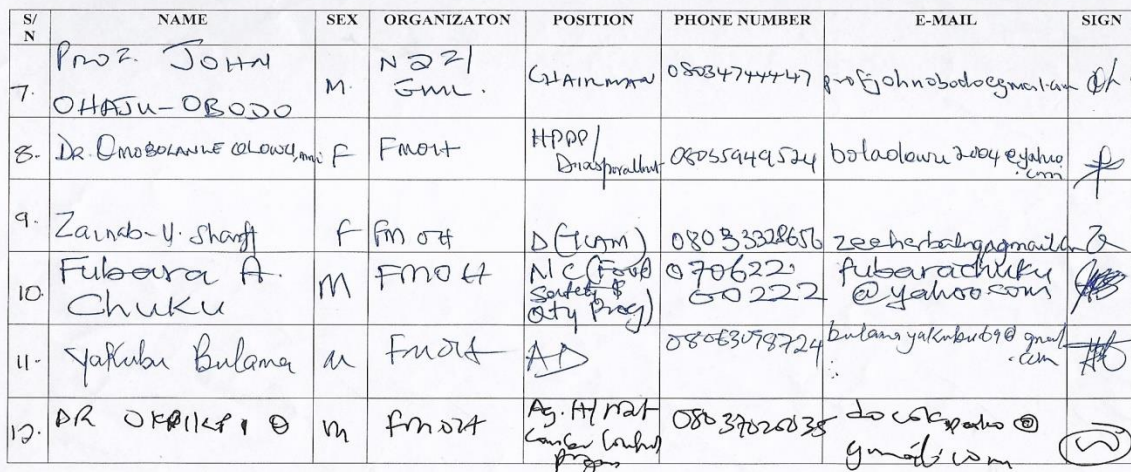 S/N NAME SEX ORGANIZATON POSITION PHONE NUMBER E-MAIL SIGN
7. PROF. JOHN OHAJU-OBODO M. GML. CHAIRMAN 08034744447 profjohnobodo@gmail.com
8. DR. OMOBOLANLE OLOWU, F FMOH HPDP/ 08055949524 bolaolowu2004@yahoo.com
9. Zainab-U. Shariff F FMOH D(TCAM) 08033328656
10. Fubara A. Chuku M FMOH NC (Food Safety & Qty Prog) 07062260222 fubarachuku@yahoo.com
11. Yakubu Bulama M FMOH AD 08063098724 bulamayakubu69@gmail.com
12. DR M FMOH Ag. H/ Nat Cancer Control Program 08037026035 gmail.com